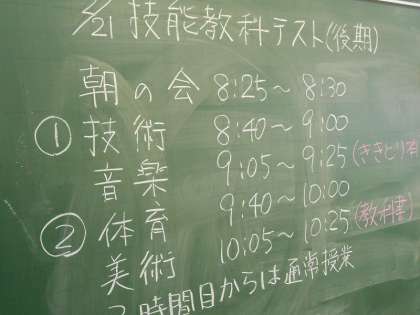 /21 技能教科テスト(後期)
朝の会 8:25〜8:30
① 技術 8:40〜9:00
音楽 9:05〜9:25(ききとり
② 体育 9:40〜10:00
美術 10:05〜10:25(教科書)
時間目からは通常授業